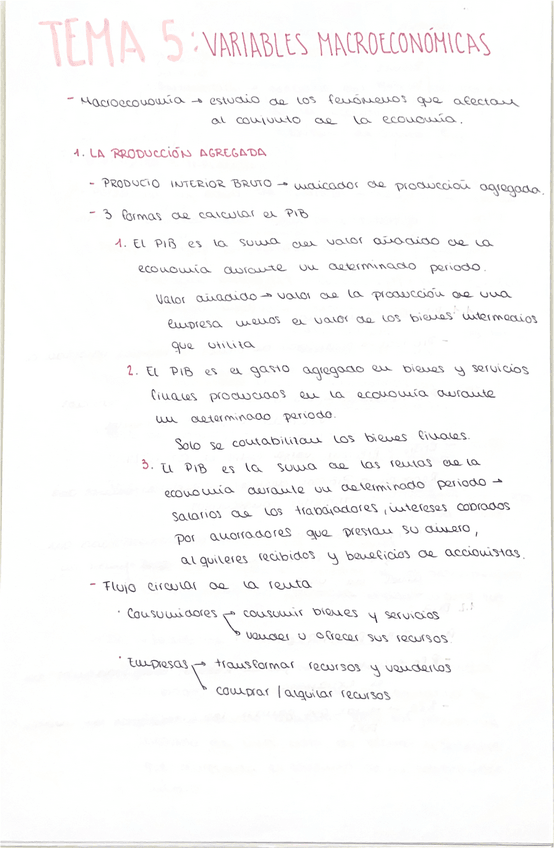 TEMA 5: VARIABLES MACROECONÓMICAS
- Macroeconomía → estudio de los fenómenos que afectan
al conjunto de la economía.
1. LA PRODUCCIÓN AGREGADA
- PRODUCTO INTERIOR BRUTO → indicador de producción agregada.
- 3 formas de calcular el PIB
1. El PIB es la suma del valor añadido de la
economía durante un determinado periodo.
Valor añadido → valor de la producción de una
empresa menos el valor de los bienes intermedios
que utiliza
2. El PIB es el gasto agregado en bienes y servicios
finales producidos en la economía durante
un determinado periodo.
Solo se contabilizan los bienes finales.
3. El PIB es la suma de las rentas de la
economía durante un determinado periodo →
salarios de los trabajadores, intereses cobrados
por ahorradores que prestan su dinero,
alquileres recibidos y beneficios de accionistas.
- Flujo circular de la renta
· Consumidores → consumir bienes y servicios
↘ vender u ofrecer sus recursos
· Empresas → transformar recursos y venderlos
↘ comprar / alquilar recursos